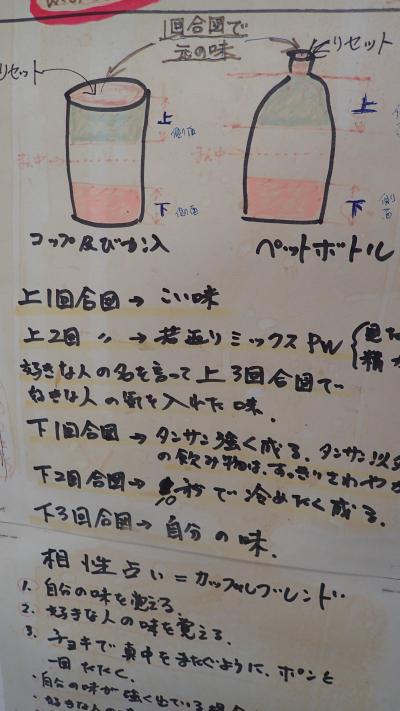 1回合図で
元の味
リセット
リセット
上
側面
まん中
下
側面
上
側
まん中
下
側面
コップ及びカン
ペットボトル
上1回合図→こい味
上2回 〃 →若返りミックスPW
好きな人の名を言って上3回合図で
好きな人の気を入れた味.
下1回合図→タンサン強く成る. タンサン以
の飲み物は、すっきりさわや
下2回合図→ 10秒で冷めたく成る.
下3回合図→自分の味.
相性占い=カップルブレンド
1. 自分の味を覚える.
2. 好きな人の味を覚える.
3. チョキで真中をまたぐように、ポンと
一回たたく.
・自分の味が強く出ている場合
・好きな人の